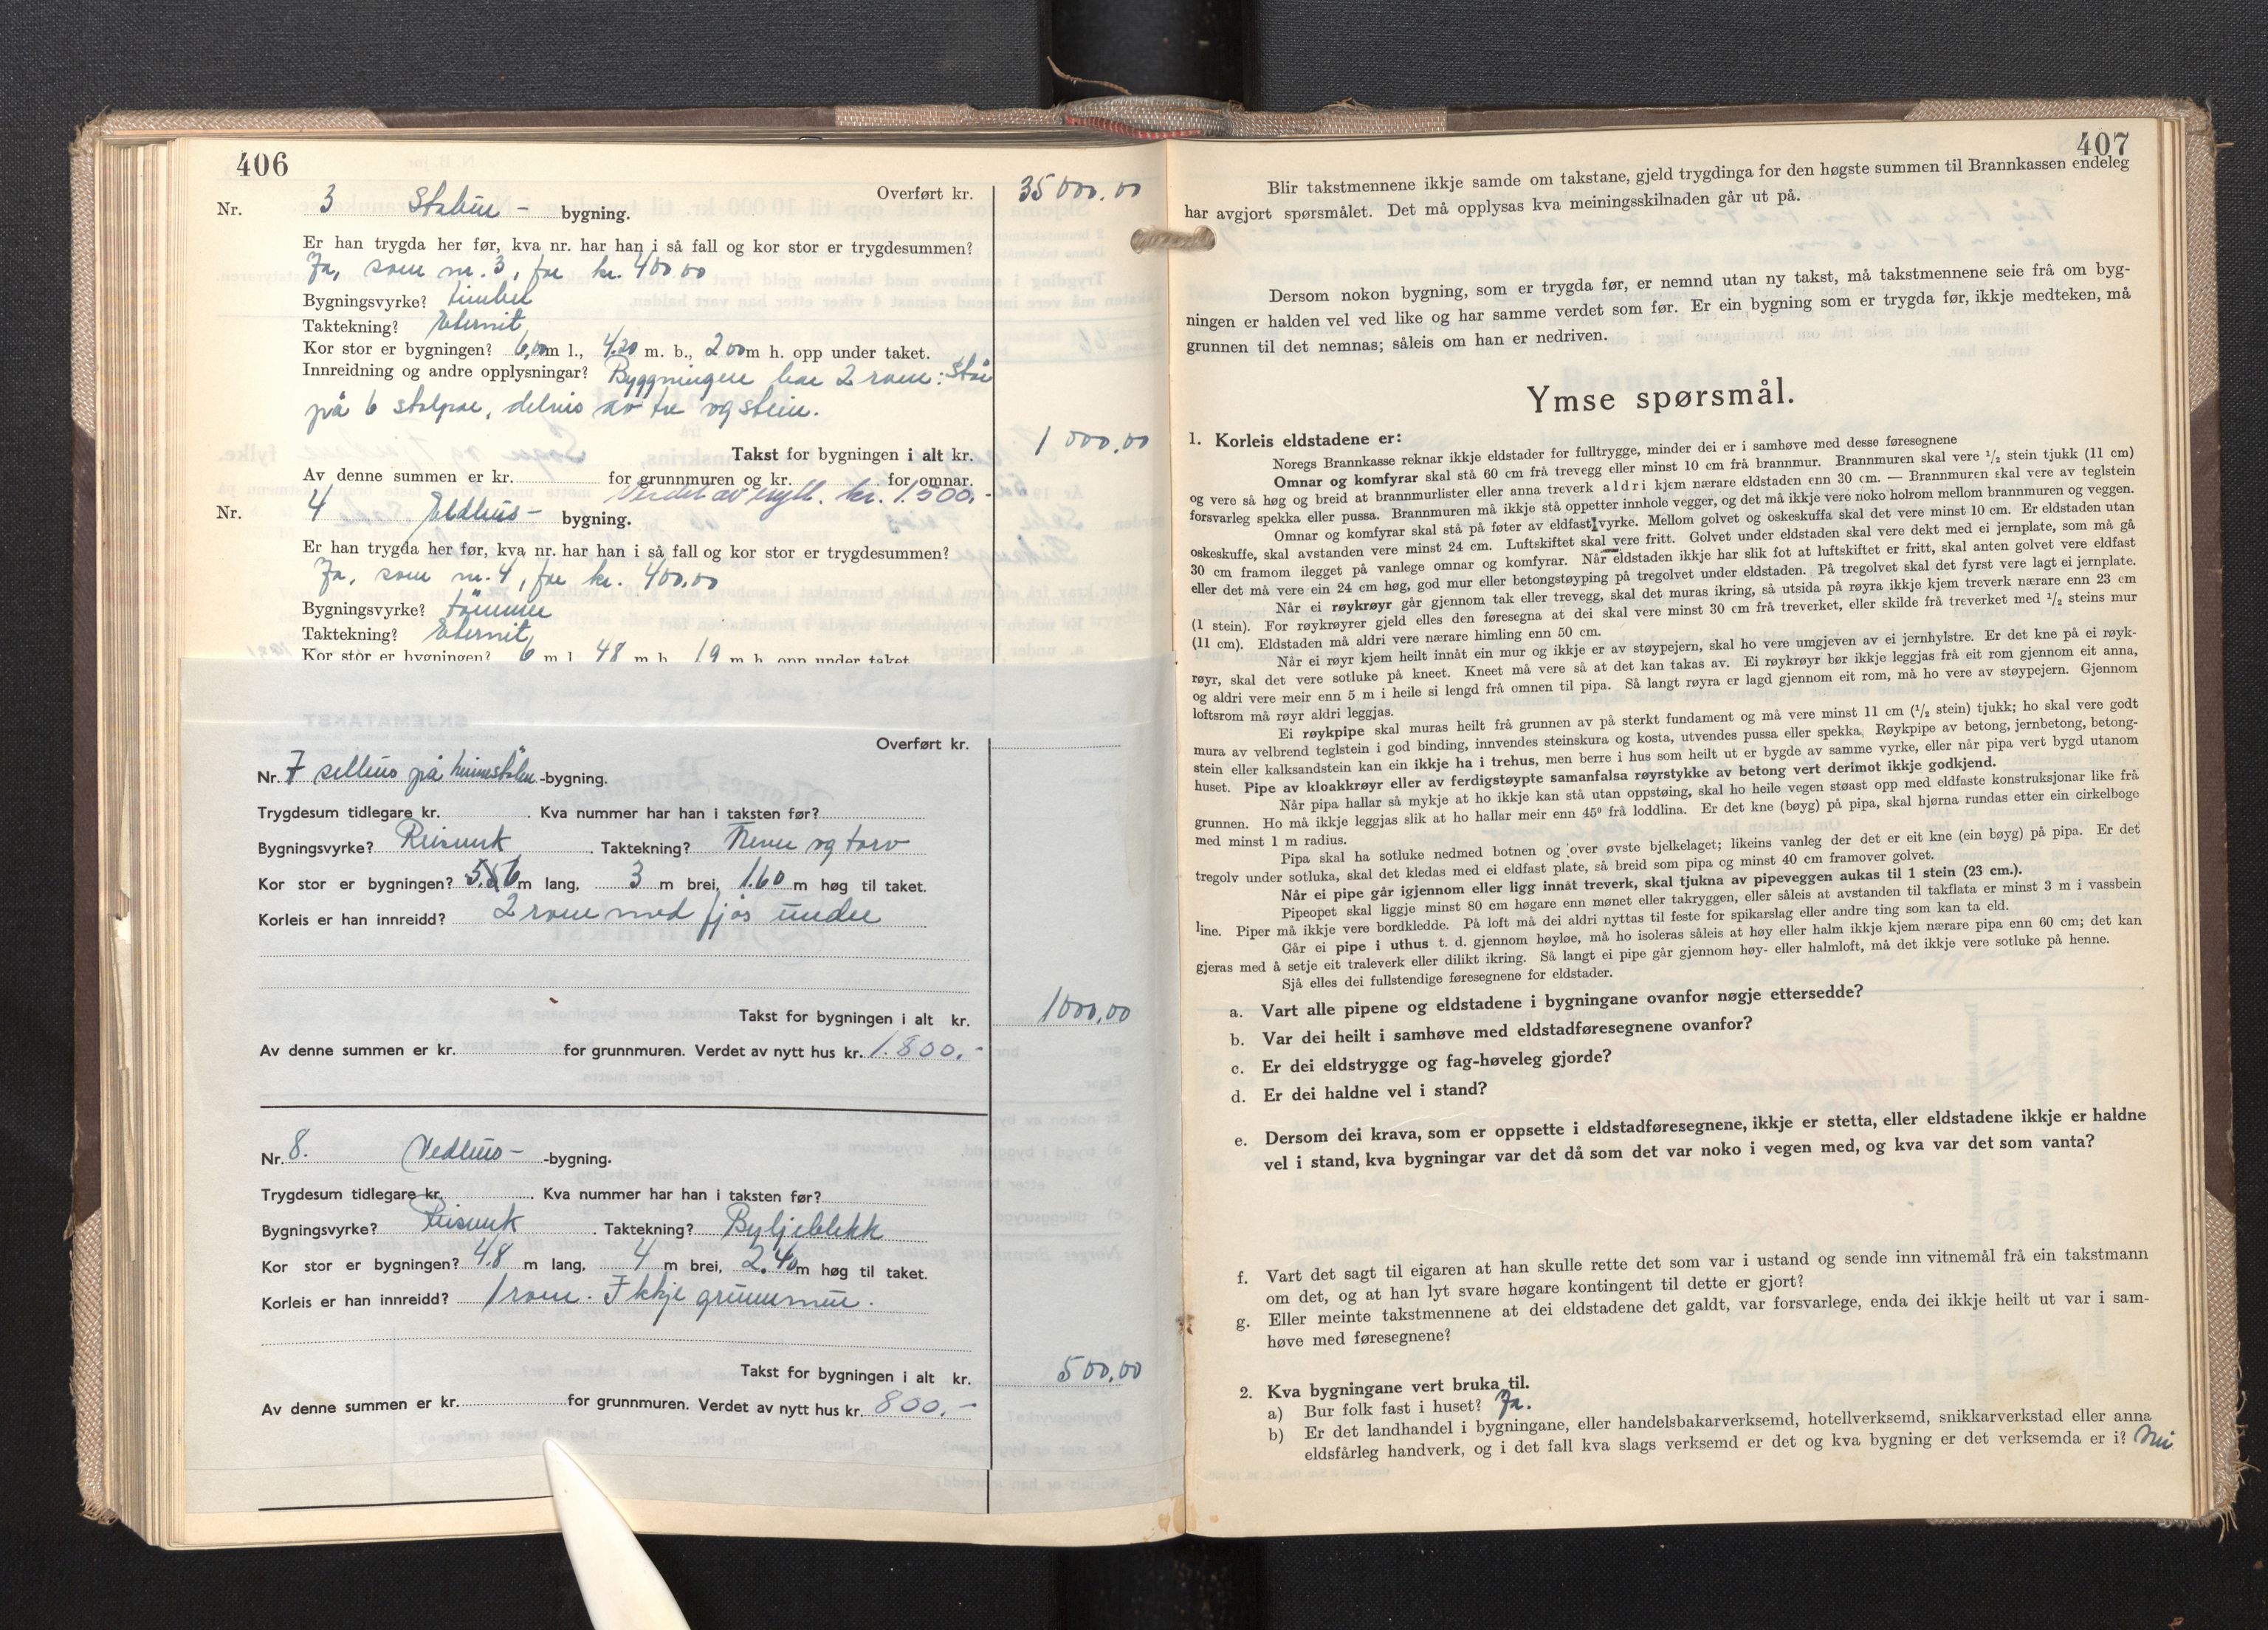 406
Overført kr. 35 000.00
Nr. 3 Stabur- bygning.
Er han trygda her før, kva nr. har han i så fall og kor stor er trygdesummen?
Ja, som nr. 3, for kr. 400.00
Bygningsvyrke? timber
Taktekning? Eternit
Kor stor er bygningen? 6,00 m l., 4.20 m. b., 2.00 m h. opp under taket.
Innreidning og andre opplysningar? Byggningen har 2 rom: Står
på 6 stolpar, delvis av tre og stein.
Takst for bygningen i alt kr. 1 000.00
Av denne summen er kr. for grunnmuren og kr. for omnar.
Verdet av nytt. kr. 1500.-
Nr. 4 Eldhus- bygning.
Er han trygda her før, kva nr. har han i så fall og kor stor er trygdesummen?
Ja, som nr. 4, for kr. 400.00
Bygningsvyrke? tømmer
Taktekning? Eternit
Kor stor er bygningen? 6 m l. 48 m b. 19 m h. opp under taket.
Overført kr.
Nr. 7 selhus på heimestølen -bygning.
Trygdesum tidlegare kr. Kva nummer har han i taksten før?
Bygningsvyrke? Reisverk Taktekning? Never og torv
Kor stor er bygningen? 5.5 6 m lang, 3 m brei, 1.60 m høg til taket.
Korleis er han innreidd? 2 rom med fjøs under
Takst for bygningen i alt kr. 1000.00
Av denne summen er kr. for grunnmuren. Verdet av nytt hus kr. 1.800.-
Nr. 8. Vedhus- -bygning.
Trygdesum tidlegare kr. Kva nummer har han i taksten før?
Bygningsvyrke? Reisverk Taktekning? Bylgjeblekk
Kor stor er bygningen? 4.8 m lang, 4 m brei, 2.40 m høg til taket.
Korleis er han innreidd? 1 rom. Ikkje grunnmur.
Takst for bygningen i alt kr. 500.00
Av denne summen er kr. for grunnmuren. Verdet av nytt hus kr. 800.-
407
Blir takstmennene ikkje samde om takstane, gjeld trygdinga for den høgste summen til Brannkassen endeleg
har avgjort spørsmålet. Det må opplysas kva meiningsskilnaden går ut på.
Dersom nokon bygning, som er trygda før, er nemnd utan ny takst, må takstmennene seie frå om byg-
ningen er halden vel ved like og har samme verdet som før. Er ein bygning som er trygda før, ikkje medteken, må
grunnen til det nemnas; såleis om han er nedriven.
Ymse spørsmål.
1. Korleis eldstadene er:
Noregs Brannkasse reknar ikkje eldstader for fulltrygge, minder dei er i samhøve med desse føresegnene
Omnar og komfyrar skal stå 60 cm frå trevegg eller minst 10 cm frå brannmur. Brannmuren skal vere 1/2 stein tjukk (11 cm)
og vere så høg og breid at brannmurlister eller anna treverk aldri kjem nærare eldstaden enn 30 cm. — Brannmuren skal vere av teglstein
forsvarleg spekka eller pussa. Brannmuren må ikkje stå oppetter innhole vegger, og det må ikkje vere noko holrom mellom brannmuren og veggen.
Omnar og komfyrar skal stå på føter av eldfast vyrke. Mellom golvet og oskeskuffa skal det vere minst 10 cm. Er eldstaden utan
oskeskuffe, skal avstanden vere minst 24 cm. Luftskiftet skal vere fritt. Golvet under eldstaden skal vere dekt med ei jernplate, som må gå
30 cm framom ilegget på vanlege omnar og komfyrar. Når eldstaden ikkje har slik fot at luftskiftet er fritt, skal anten golvet vere eldfast
eller det må vere ein 24 cm høg, god mur eller betongstøyping på tregolvet under eldstaden. På tregolvet skal det fyrst vere lagt ei jernplate.
Når ei røykrøyr går gjennom tak eller trevegg, skal det muras ikring, så utsida på røyra ikkje kjem treverk nærare enn 23 cm
(1 stein). For røykrøyrer gjeld elles den føresegna at dei skal vere minst 30 cm frå treverket, eller skilde frå treverket med 1/2 steins mur
(11 cm). Eldstaden må aldri vere nærare himling enn 50 cm.
Når ei røyr kjem heilt innåt ein mur og ikkje er av støypejern, skal ho vere umgjeven av ei jernhylstre. Er det kne på ei røyk-
røyr, skal det vere sotluke på kneet. Kneet må vere så at det kan takas av. Ei røykrøyr bør ikkje leggjas frå eit rom gjennom eit anna,
og aldri vere meir enn 5 m i heile si lengd frå omnen til pipa. Så langt røyra er lagd gjennom eit rom, må ho vere av støypejern. Gjennom
loftsrom må røyr aldri leggjas.
Ei røykpipe skal muras heilt frå grunnen av på sterkt fundament og må vere minst 11 cm (1/2 stein) tjukk; ho skal vere godt
mura av velbrend teglstein i god binding, innvendes steinskura og kosta, utvendes pussa eller spekka. Røykpipe av betong, jernbetong, betong-
stein eller kalksandstein kan ein ikkje ha i trehus, men berre i hus som heilt ut er bygde av samme vyrke, eller når pipa vert bygd utanom
huset. Pipe av kloakkrøyr eller av ferdigstøypte samanfalsa røyrstykke av betong vert derimot ikkje godkjend.
Når pipa hallar så mykje at ho ikkje kan stå utan oppstøing, skal ho heile vegen støast opp med eldfaste konstruksjonar like frå
grunnen. Ho må ikkje leggjas slik at ho hallar meir enn 45° frå loddlina. Er det kne (bøyg) på pipa, skal hjørna rundas etter ein cirkelboge
med minst 1 m radius.
Pipa skal ha sotluke nedmed botnen og over øvste bjelkelaget; likeins vanleg der det er eit kne (ein bøyg) på pipa. Er det
tregolv under sotluka, skal det kledas med ei eldfast plate, så breid som pipa og minst 40 cm framover golvet.
Når ei pipe går igjennom eller ligg innåt treverk, skal tjukna av pipeveggen aukas til 1 stein (23 cm.).
Pipeopet skal liggje minst 80 cm høgare enn mønet eller takryggen, eller såleis at avstanden til takflata er minst 3 m i vassbein
line. Piper må ikkje vere bordkledde. På loft må dei aldri nyttas til feste for spikarslag eller andre ting som kan ta eld.
Går ei pipe i uthus t. d. gjennom høyløe, må ho isoleras såleis at høy eller halm ikkje kjem nærare pipa enn 60 cm; det kan
gjeras med å setje eit traleverk eller dilikt ikring. Så langt ei pipe går gjennom høy- eller halmloft, må det ikkje vere sotluke på henne.
Sjå elles dei fullstendige føresegnene for eldstader.
a. Vart alle pipene og eldstadene i bygningane ovanfor nøgje ettersedde?
b. Var dei heilt i samhøve med eldstadføresegnene ovanfor?
c. Er dei eldstrygge og fag-høveleg gjorde?
d. Er dei haldne vel i stand?
e. Dersom dei krava, som er oppsette i eldstadføresegnene, ikkje er stetta, eller eldstadene ikkje er haldne
vel i stand, kva bygningar var det då som det var noko i vegen med, og kva var det som vanta?
f. Vart det sagt til eigaren at han skulle rette det som var i ustand og sende inn vitnemål frå ein takstmann
om det, og at han lyt svare høgare kontingent til dette er gjort?
g. Eller meinte takstmennene at dei eldstadene det galdt, var forsvarlege, enda dei ikkje heilt ut var i sam-
høve med føresegnene?
2. Kva bygningane vert bruka til.
a) Bur folk fast i huset? Ja.
b) Er det landhandel i bygningane, eller handelsbakarverksemd, hotellverksemd, snikkarverkstad eller anna
eldsfårleg handverk, og i det fall kva slags verksemd er det og kva bygning er det verksemda er i? Nei